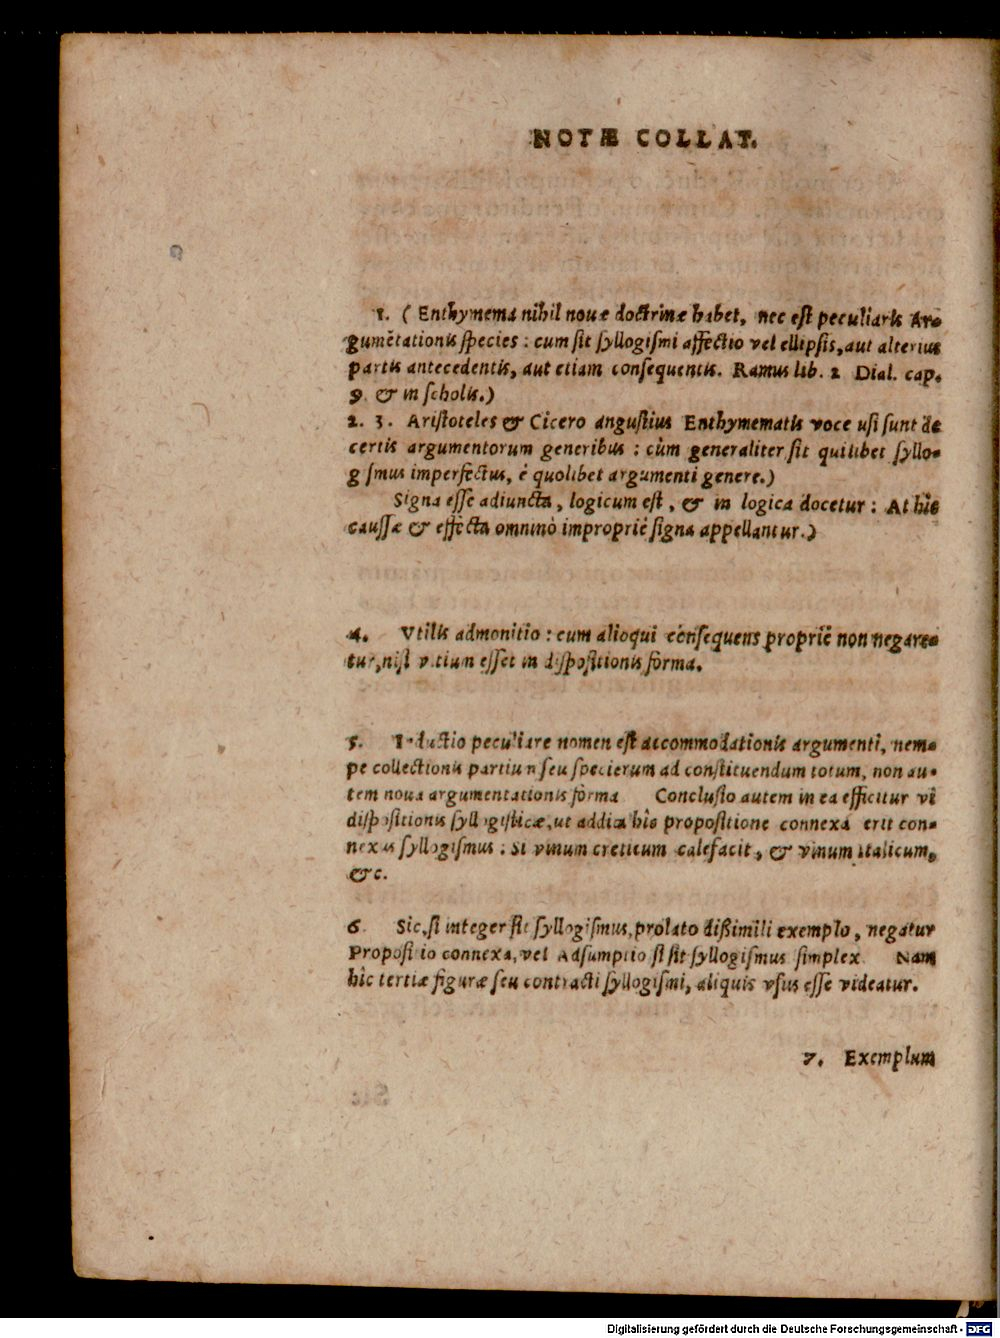 NOTÆ COLLAT.
1. ( Enthymema nihil nouæ doctrinæ habet, nec est peculiaris Ar-
gumētationis species : cum sit syllogismi affectio vel ellipsis, aut alterius
partis antecedentis, aut etiam consequentis. Ramus lib. 2 Dial. cap.
9. & in scholis.)
2. 3. Aristoteles & Cicero angustius Enthymematis voce usi sunt de
certis argumentorum generibus : cùm generaliter sit quilibet syllo-
gismus imperfectus, è quolibet argumenti genere.)
Signa esse adiuncta, logicum est, & in logica docetur : At hîc
caussæ & effecta omninò impropriè signa appellantur.)
4. Vtilis admonitio : cum alioqui consequens propriè non negare-
tur, nisi vitium esset in dispositionis forma.
5. Inductio peculiare nomen est accommodationis argumenti, nem-
pe collectionis partium seu specierum ad constituendum totum, non au-
tem noua argumentationis forma Conclusio autem in ea efficitur vi
dispositionis syllogisticæ, ut addita hîc propositione connexa erit con-
nexus syllogismus : Si vinum creticum calefacit, & vinum italicum,
&c.
6. Sic, si integer sit syllogismus, prolato dißimili exemplo, negatur
Propositio connexa, vel Adsumptio si sit syllogismus simplex. Nam
hîc tertiæ figuræ seu contracti syllogismi, aliquis vsus esse videatur.
7. Exemplum
Digitalisierung gefördert durch die Deutsche Forschungsgemeinschaft - DFG